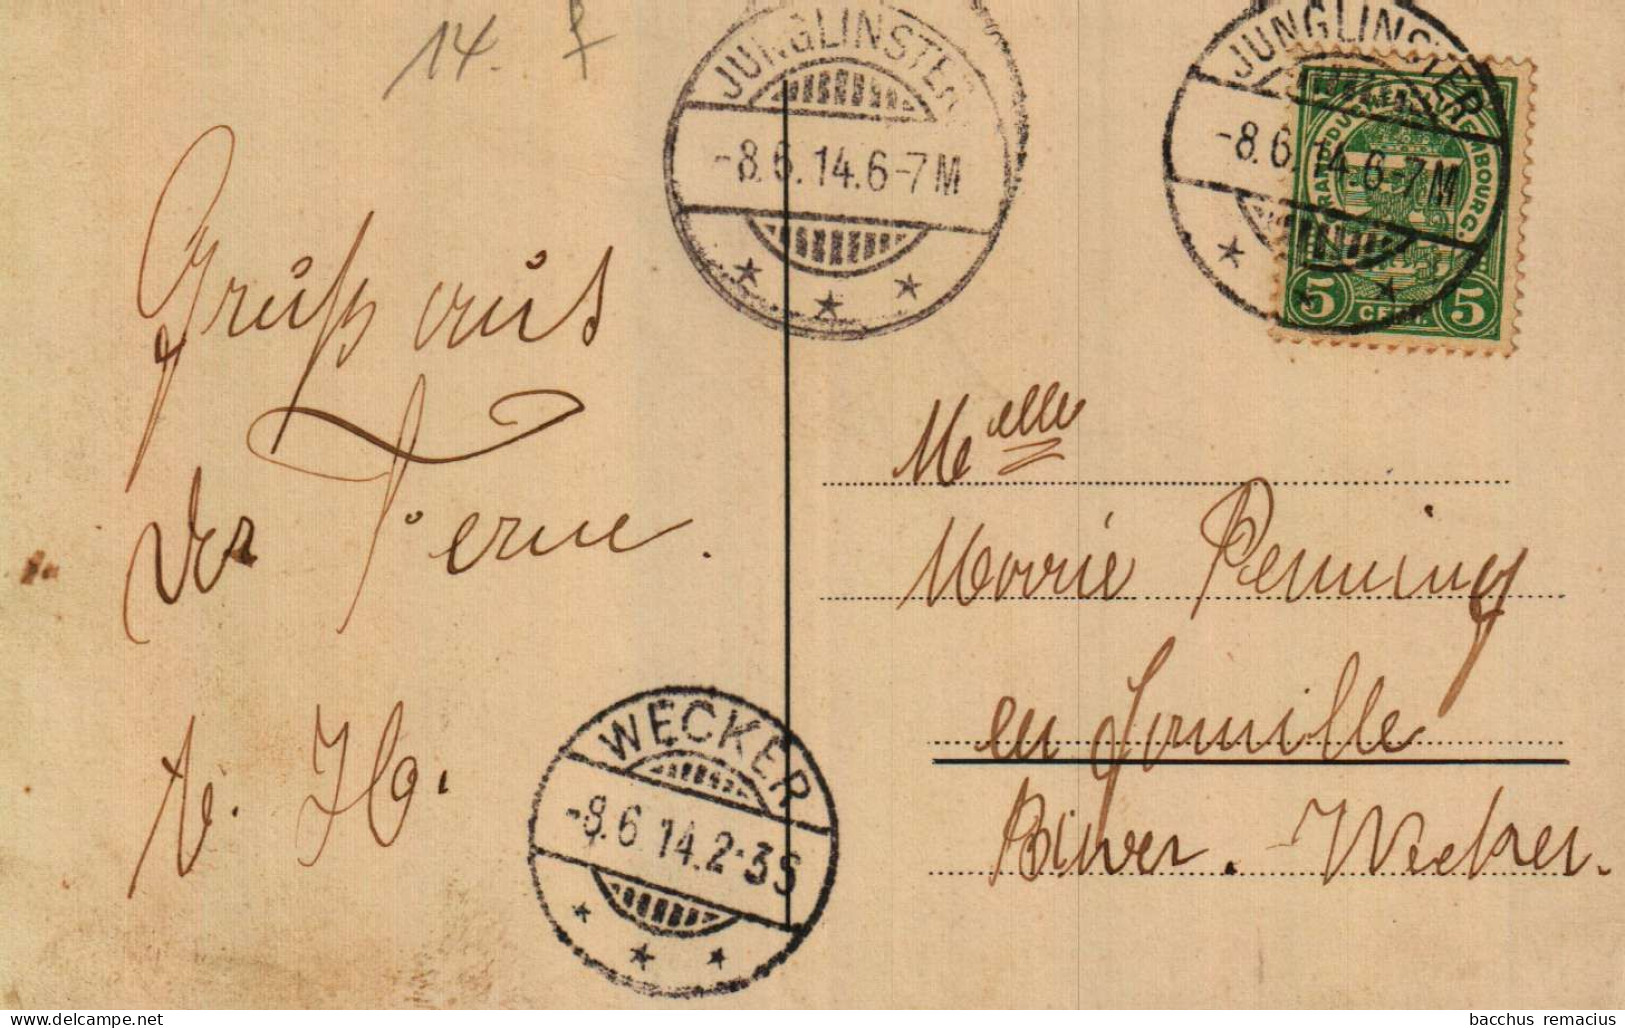 14. f
JUNGLINSTER
-8.6.14.6-7M
JUNGLINSTER
-8.6.14.6-7M
GRAND DUCHÉ DE LUXEMBOURG.
5 CENT. 5
Gruß aus
der Ferne.
Melle
Marie Penning
en famille
Biwer. - Wecker.
WECKER
-8.6 14.2-3S
bacchus remacius
delcampe.net